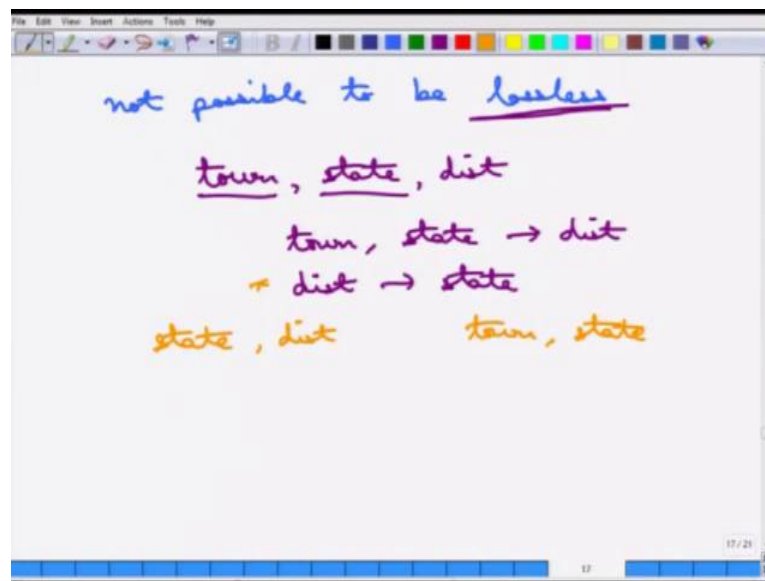 File Edit View Insert Actions Tools Help
B I
not possible to be lossless
town, state, dist
town, state → dist
* dist → state
state, dist town, state
17 / 21
17